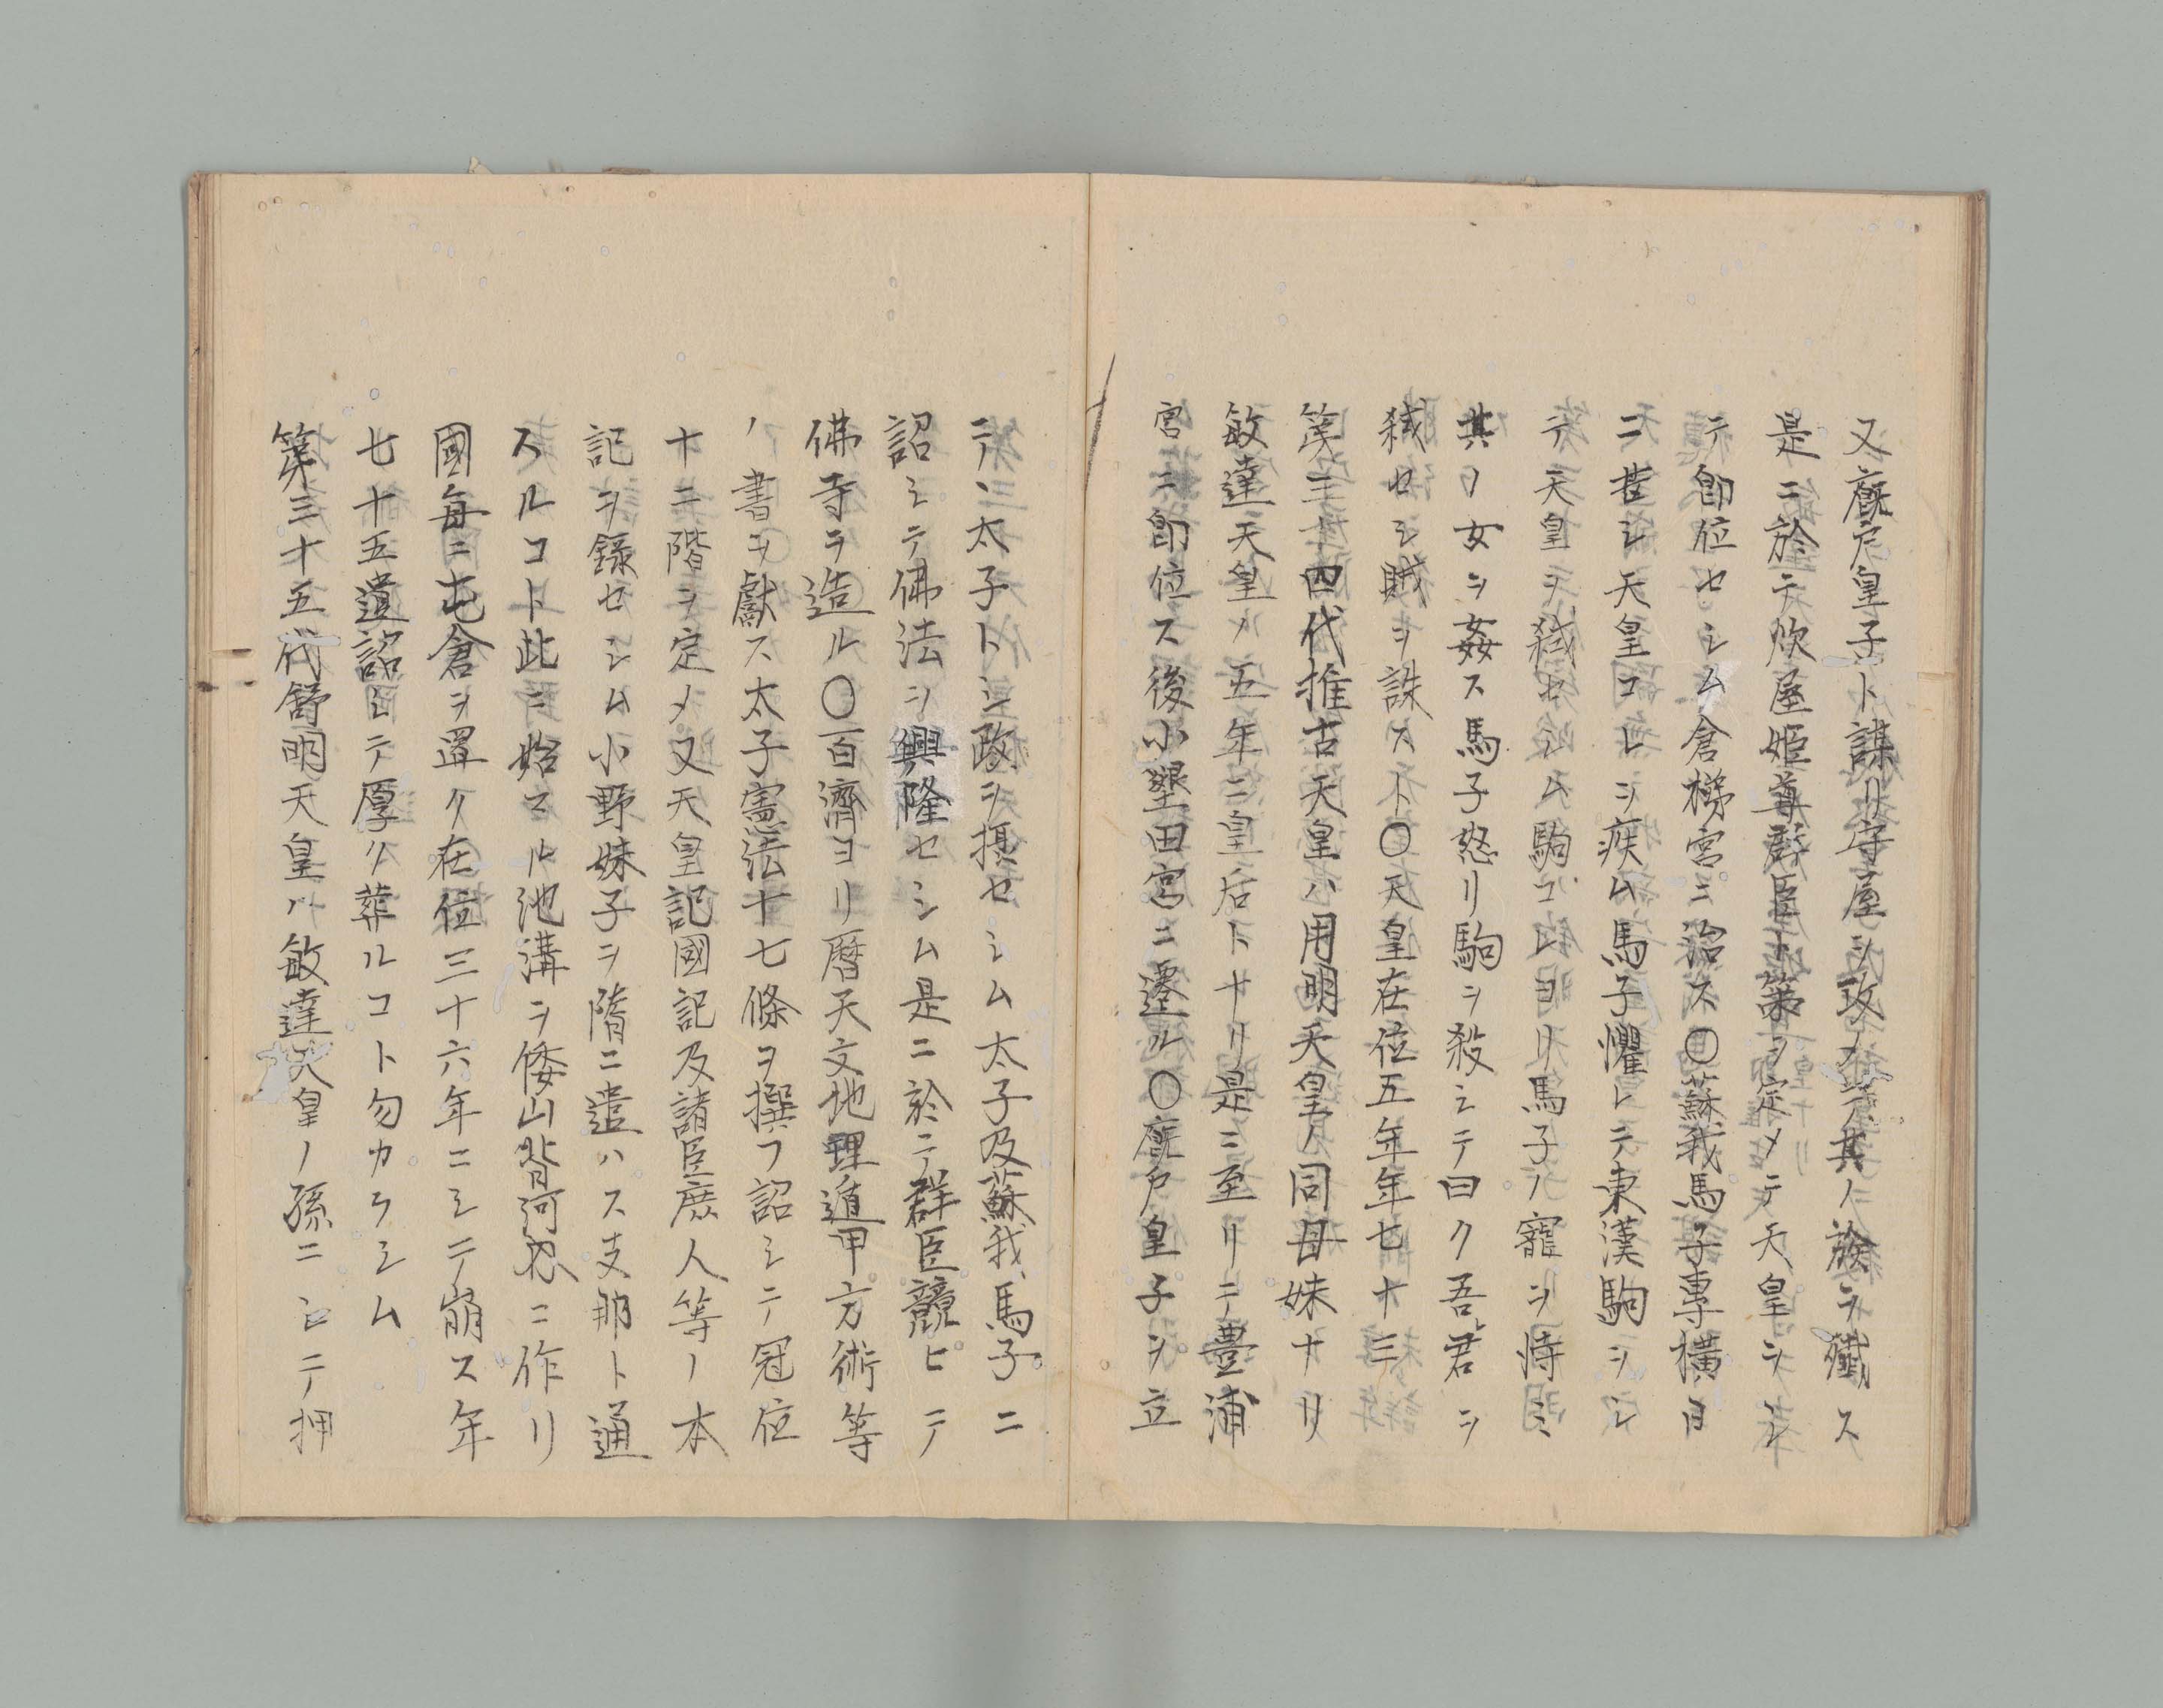 又廐戸皇子ト謀リ守屋ヲ攻メ其ノ族ヲ殲ス
是ニ於テ炊屋姫尊群臣ト策ヲ定メテ天皇ヲシ
テ即位セシム倉梯宮ニ治ス〇蘇我馬子專横自
ニ甚シ天皇コレヲ疾ム馬子懼レテ東漢駒ヲシ
テ天皇ヲ弑セシム駒コレヨリ馬子ノ寵ヲ恃ミ
其ノ女ヲ姦ス馬子怒リ駒ヲ殺シテ曰ク吾君ヲ
弑セシ賊ヲ誅スト〇天皇在位五年年七十三
第三十四代推古天皇ハ用明天皇ノ同母妹ナリ
敏達天皇ノ五年ニ皇后トナリ是ニ至リテ豊浦
宮ニ即位ス後小墾田宮ニ遷ル〇廐戸皇子ヲ立
テヽ太子トシ政ヲ摂セシム太子及蘇我馬子ニ
詔シテ佛法ヲ興隆セシム是ニ於テ群臣競ヒテ
佛寺ヲ造ル〇百濟ヨリ暦天文地理遁甲方術等
ノ書ヲ獻ス太子憲法十七條ヲ撰フ詔シテ冠位
十二階ヲ定メ又天皇記國記及諸臣庶人等ノ本
記ヲ録セシム小野妹子ヲ隋ニ遣ハス支那ト通
スルコト此ニ始マル池溝ヲ倭山背河内ニ作リ
國毎ニ屯倉ヲ置ク在位三十六年ニシテ崩ス年
七十五遺詔シテ厚ク葬ルコト勿カラシム
第三十五代舒明天皇ハ敏達天皇ノ孫ニシテ押